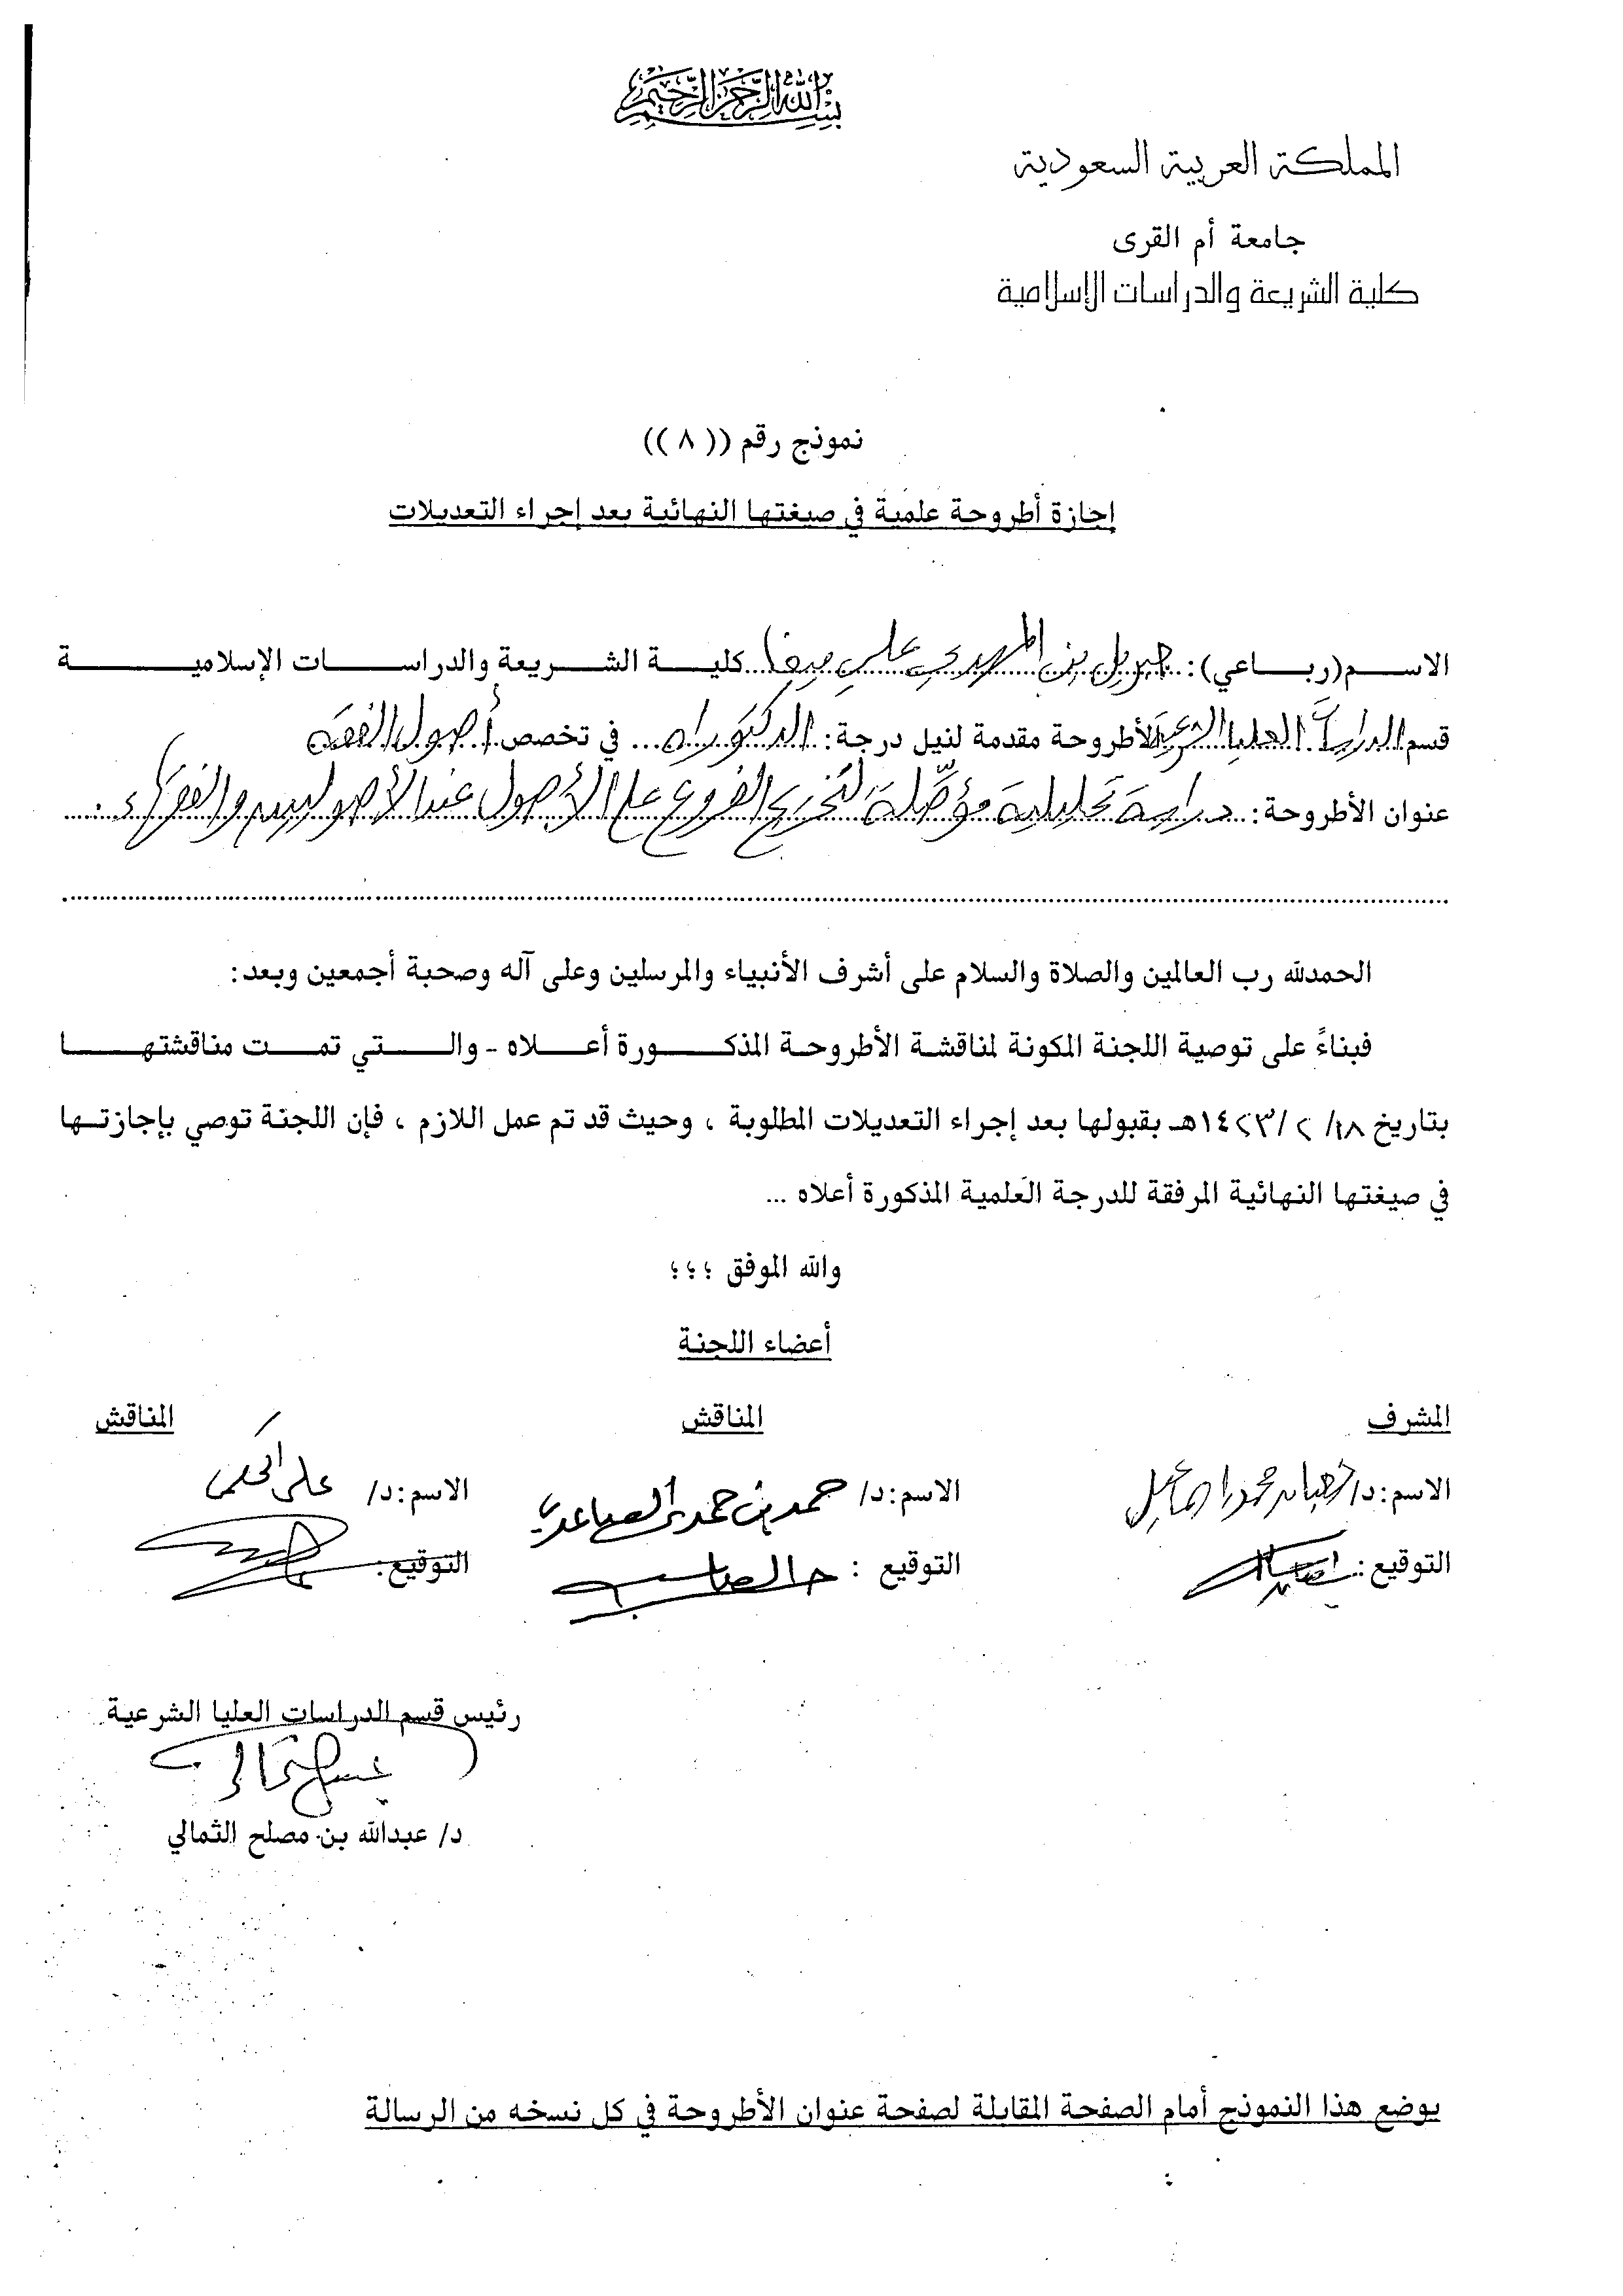 بسم الله الرحمن الرحيم
المملكة العربية السعودية
جامعة أم القرى
كلية الشريعة والدراسات الإسلامية
نموذج رقم ((٨))
إجازة أطروحة علمية في صيغتها النهائية بعد إجراء التعديلات
الاسم(رباعي): جبريل بن المهدي علي ميغا كلية الشريعة والدراسات الإسلامية
قسم الدراسات العليا الشرعية الأطروحة مقدمة لنيل درجة: الدكتوراه في تخصص أصول الفقه
عنوان الأطروحة: دراسة تحليلية مؤصّلة لتخريج الفروع على الأصول عند الأصوليين والفقهاء
الحمدلله رب العالمين والصلاة والسلام على أشرف الأنبياء والمرسلين وعلى آله وصحبة أجمعين وبعد:
فبناءً على توصية اللجنة المكونة لمناقشة الأطروحة المذكورة أعلاه - والتي تمت مناقشتها
بتاريخ ١٨/ ٢/ ١٤٢٣هـ بقبولها بعد إجراء التعديلات المطلوبة ، وحيث قد تم عمل اللازم ، فإن اللجنة توصي بإجازتها
في صيغتها النهائية المرفقة للدرجة العلمية المذكورة أعلاه ...
والله الموفق ؛؛؛
أعضاء اللجنة
المشرف المناقش المناقش
الاسم: د/ شعبان محمد إسماعيل الاسم: د/ حمد بن حمدي الصاعدي الاسم: د/ علي الحكمي
التوقيع: التوقيع : التوقيع:
رئيس قسم الدراسات العليا الشرعية
د/ عبدالله بن مصلح الثمالي
يوضع هذا النموذج أمام الصفحة المقابلة لصفحة عنوان الأطروحة في كل نسخه من الرسالة